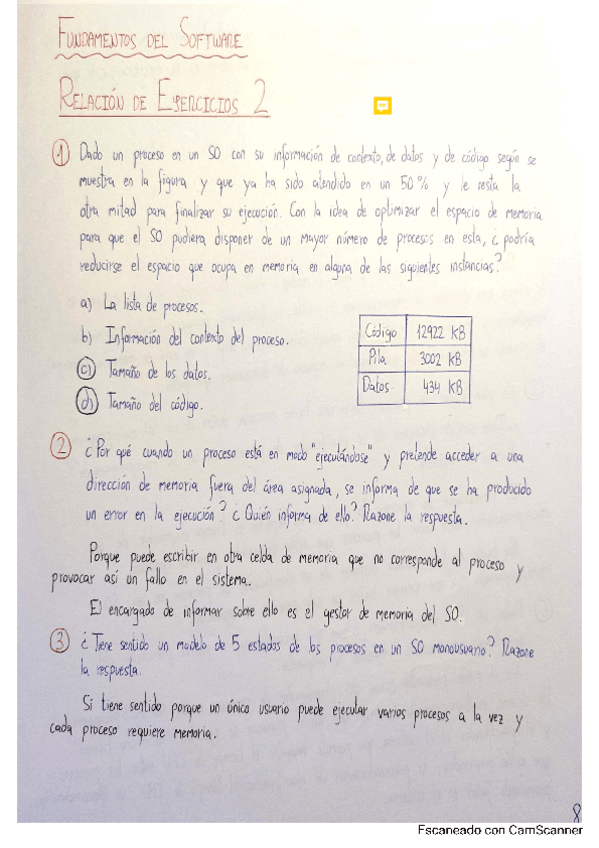 FUNDAMENTOS DEL SOFTWARE
RELACIÓN DE EJERCICIOS 2
1 Dado un proceso en un SO con su información de contexto, de datos y de código según se
muestra en la figura y que ya ha sido atendido en un 50% y le resta la
otra mitad para finalizar su ejecución. Con la idea de optimizar el espacio de memoria
para que el SO pudiera disponer de un mayor número de procesos en esta, ¿podría
reducirse el espacio que ocupa en memoria en alguna de las siguientes instancias?
a) La lista de procesos.
b) Información del contexto del proceso.
c) Tamaño de los datos.
d) Tamaño del código.
Código 12922 KB
Pila 3002 KB
Datos 434 KB
2 ¿Por qué cuando un proceso está en modo "ejecutándose" y pretende acceder a una
dirección de memoria fuera del área asignada, se informa de que se ha producido
un error en la ejecución? ¿Quién informa de ello? Razone la respuesta.
Porque puede escribir en otra celda de memoria que no corresponde al proceso y
provocar así un fallo en el sistema.
El encargado de informar sobre ello es el gestor de memoria del SO.
3 ¿Tiene sentido un modelo de 5 estados de los procesos en un SO monousuario? Razone
la respuesta.
Si tiene sentido porque un único usuario puede ejecutar varios procesos a la vez y
cada proceso requiere memoria.
8
Escaneado con CamScanner